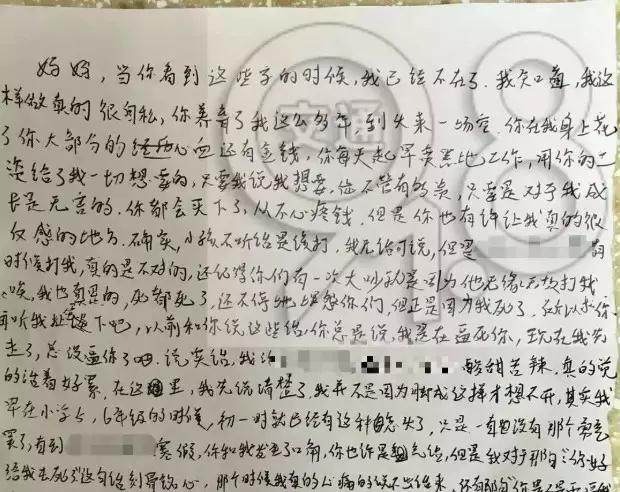 妈妈，当你看到这些字的时候，我已经不在了。我知道，我这
样做真的很自私，你养育了我这么多年，到头来一场空。你在我身上花
了你大部分的心血还有金钱，你每天起早卖黑地工作，用你的工
资给了我一切想要的，只要我说我想要，你不管有多贵，只要是对于我成
长是无害的，你都会买下了，从不心疼钱。但是你也有许让我真的很
反感的地方。确实，小孩不听话是该打，我无话可说，但是 的
时候打我，真的是不对的，还记得你们有一次大吵 是因为他无缘无故打我
唉，我也真是的，死都死了，还不停地 你们，但正是因为我死了，所以求你
听我 下吧，以前和你说这些话，你总是说，我是在逼死你，现在我先
走了，总没逼你了吧。说实话，我 酸甜苦辣，真的觉
的活着好累。在这里，我先说清楚了，我并不是因为脚成这样才想不开，其实我
早在小学5，6年级的时候，初一时就已经有这种 了，只是一直没有那个勇气
罢了，直到 寒假，你和我发生了口角，你也许是 气话，但是我对于那句“你好
给我去死”这句话刻骨铭心，那个时候我真的心痛的说不出话来，还有那句
交通